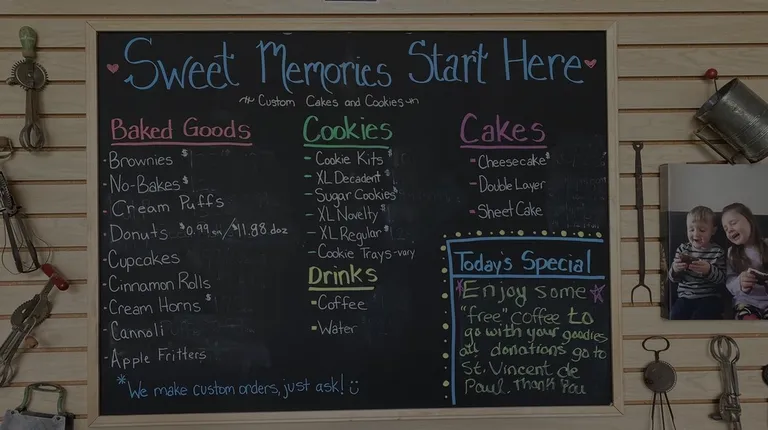 Sweet Memories Start Here
Custom Cakes and Cookies
Baked Goods
·Brownies $
·No-Bakes $
·Cream Puffs
·Donuts $0.99 ea/$11.88 doz
·Cupcakes
·Cinnamon Rolls
·Cream Horns $
·Cannoli
·Apple Fritters
*We make custom orders, just ask!
Cookies
- Cookie Kits $
- XL Decadent $
- Sugar Cookies $
- XL Novelty $
- XL Regular $
- Cookie Trays-vary
Drinks
·Coffee
·Water
Cakes
- Cheesecake $
- Double Layer
- Sheet Cake
Today's Special
Enjoy some
"free" coffee to
go with your goodies
all donations go to
St. Vincent de
Paul. Thank You